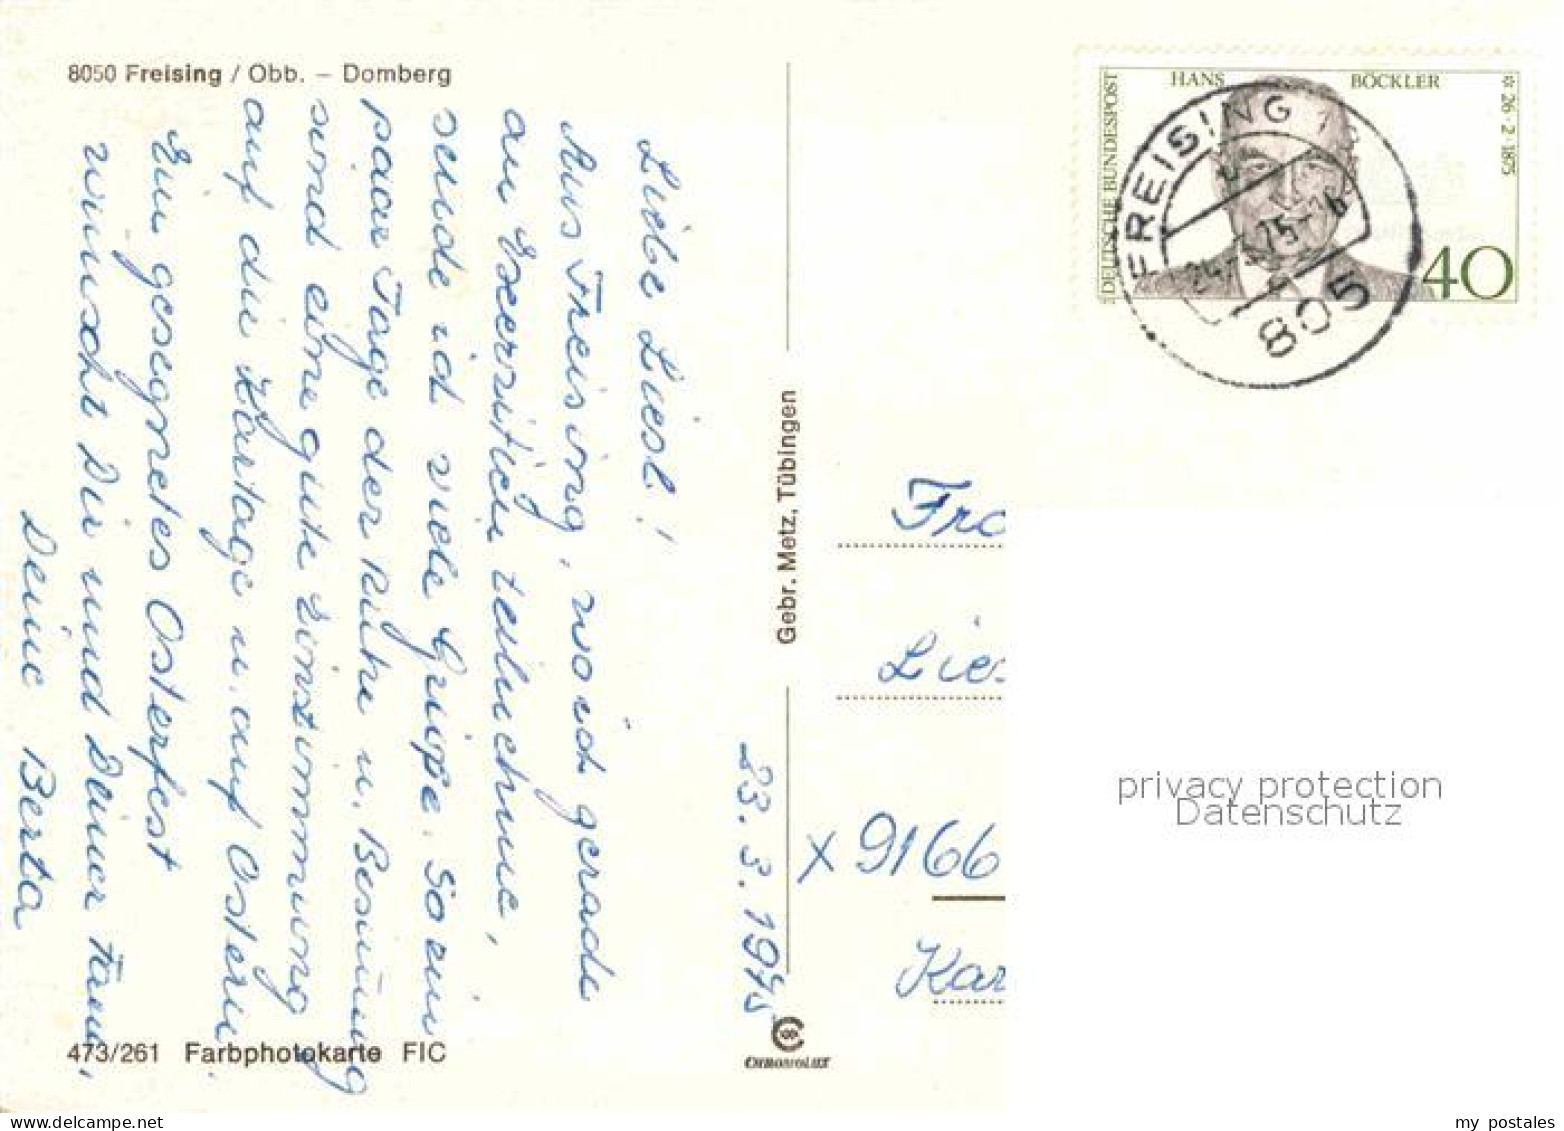 8050 Freising / Obb. – Domberg
23. 3. 1975
Liebe Liesl!
Aus Freising, wo ich gerade
an Exerzitien teilnehme,
sende ich viele Grüße. So ein
paar Tage der Ruhe u. Besinnung
sind eine gute Einstimmung
auf die Kartage u. auf Ostern.
Ein gesegnetes Osterfest
wünscht Dir und Deiner Fam.
Deine Berta
473/261 Farbphotokarte FIC
Gebr. Metz, Tübingen
CHROMOLUX
DEUTSCHE BUNDESPOST
HANS BÖCKLER
* 26·2·1875
40
FREISING 1
805
Fra
Lies
x 9166
Kar
privacy protection
Datenschutz
my postales